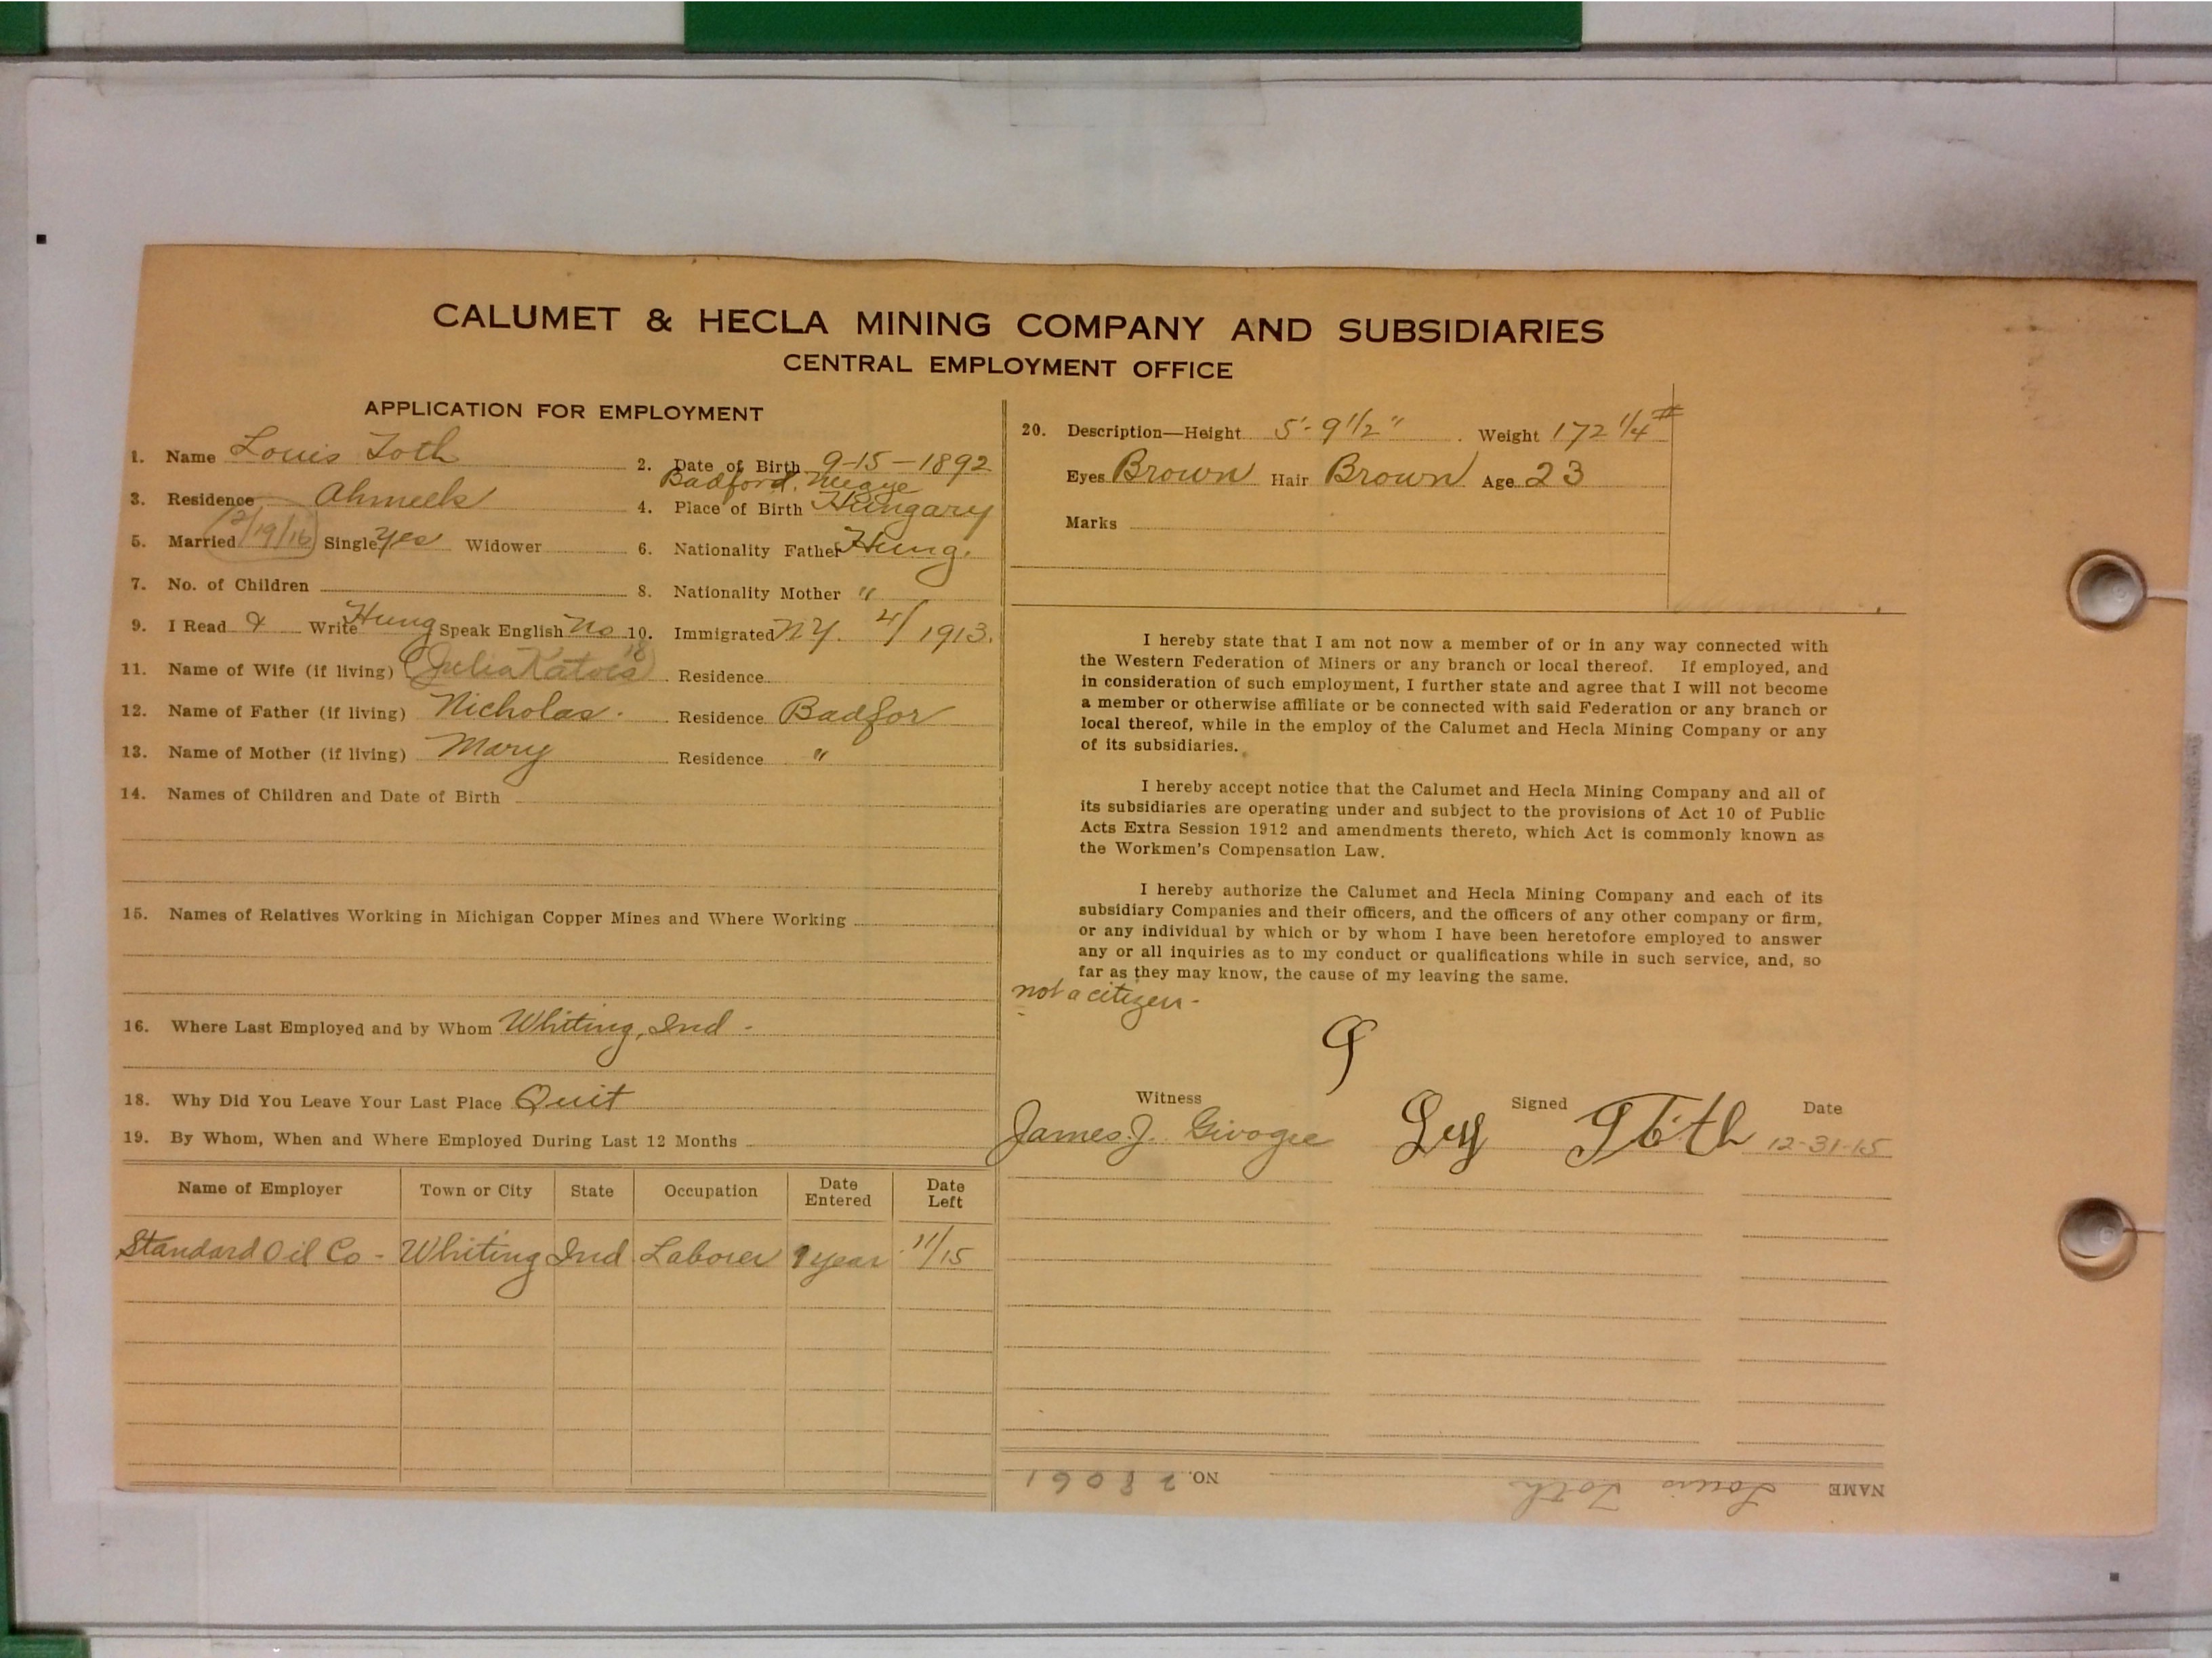 CALUMET & HECLA MINING COMPANY AND SUBSIDIARIES
CENTRAL EMPLOYMENT OFFICE
APPLICATION FOR EMPLOYMENT
1. Name Louis Toth 2. Date of Birth 9-15-1892
3. Residence Ahmeek 4. Place of Birth Badford, Hungary
5. Married Single yes Widower 6. Nationality Father Hung.
7. No. of Children 8. Nationality Mother "
9. I Read & Write Hung Speak English No 10. Immigrated N.Y. 4/1913.
11. Name of Wife (if living) (Julia Residence
12. Name of Father (if living) Nicholas. Residence Badfor
13. Name of Mother (if living) Mary Residence "
14. Names of Children and Date of Birth
15. Names of Relatives Working in Michigan Copper Mines and Where Working
16. Where Last Employed and by Whom Whiting, Ind -
18. Why Did You Leave Your Last Place Quit
19. By Whom, When and Where Employed During Last 12 Months
Name of Employer Town or City State Occupation Date Entered Date Left
Standard Oil Co - Whiting Ind Laborer 1 year 11/15
20. Description—Height 5'-9 1/2" Weight 172 1/4 #
Eyes Brown Hair Brown Age 23
Marks
I hereby state that I am not now a member of or in any way connected with
the Western Federation of Miners or any branch or local thereof. If employed, and
in consideration of such employment, I further state and agree that I will not become
a member or otherwise affiliate or be connected with said Federation or any branch or
local thereof, while in the employ of the Calumet and Hecla Mining Company or any
of its subsidiaries.
I hereby accept notice that the Calumet and Hecla Mining Company and all of
its subsidiaries are operating under and subject to the provisions of Act 10 of Public
Acts Extra Session 1912 and amendments thereto, which Act is commonly known as
the Workmen's Compensation Law.
I hereby authorize the Calumet and Hecla Mining Company and each of its
subsidiary Companies and their officers, and the officers of any other company or firm,
or any individual by which or by whom I have been heretofore employed to answer
any or all inquiries as to my conduct or qualifications while in such service, and, so
far as they may know, the cause of my leaving the same.
not a citizen -
Witness Signed Date
James J. Toth 12-31-15
NAME Louis Toth NO. 28061